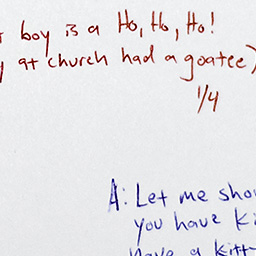 boy is a Ho, Ho, Ho!
at church had a goatee)
1/4
A: Let me
you have
have a